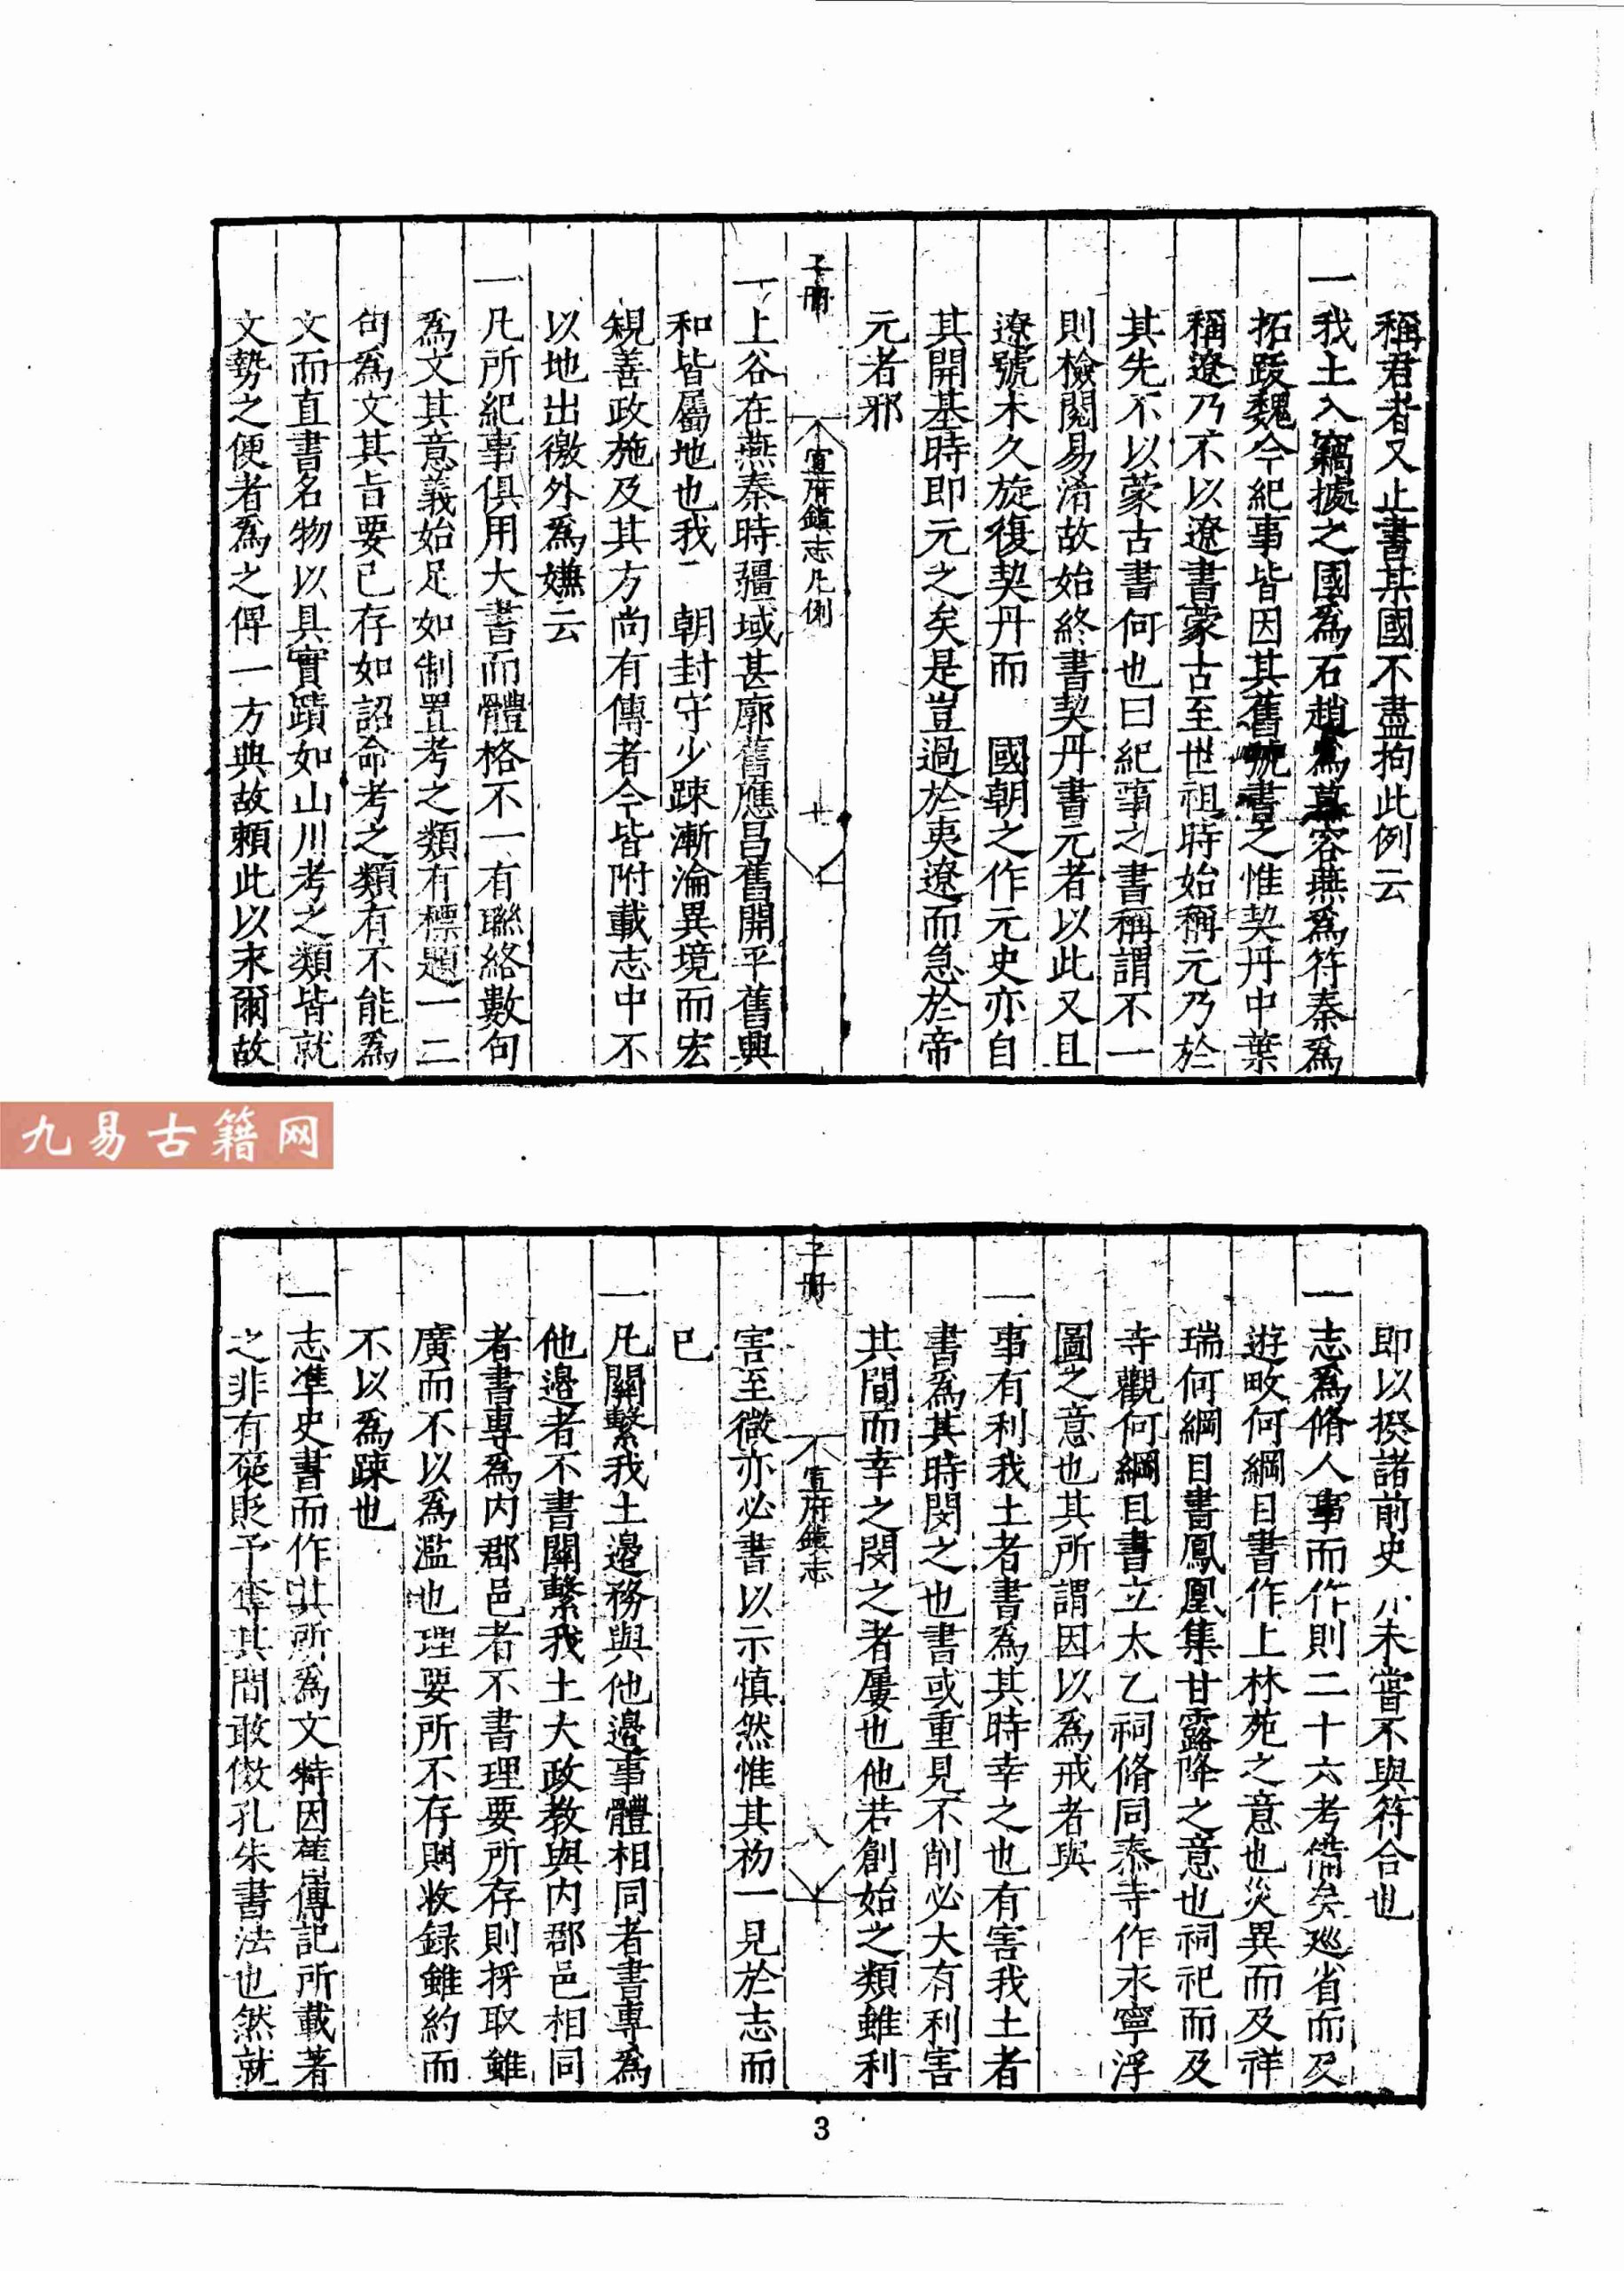 稱君者又止書某國不盡拘此例云
一我土入竊據之國爲石趙爲慕容燕爲符秦爲
拓跋魏今紀事皆因其舊號書之惟契丹中葉
稱遼乃不以遼書蒙古至世祖時始稱元乃於
其先不以蒙古書何也曰紀事之書稱謂不一
則檢閱易淆故始終書契丹書元者以此又且
遼號未久旋復契丹而 國朝之作元史亦自
其開基時即元之矣是豈過於夷遼而急於帝
元者邪
子冊
宣府鎮志凡例
十
一上谷在燕秦時疆域甚廓舊應昌舊開平舊興
和皆屬地也我 朝封守少踈漸淪異境而宏
規善政施及其方尚有傳者今皆附載志中不
以地出徼外爲嫌云
一凡所紀事俱用大書而體格不一有聯絡數句
爲文其意義始足如制置考之類有標題一二
句爲文其旨要已存如詔命考之類有不能爲
文而直書名物以具實蹟如山川考之類皆就
文勢之便者爲之俾一方典故賴此以永爾故
九易古籍网
即以揆諸前史亦未嘗不與符合也
一志爲脩人事而作則二十六考備矣廵省而及
遊畋何綱目書作上林苑之意也災異而及祥
瑞何綱目書鳳凰集甘露降之意也祠祀而及
寺觀何綱目書立太乙祠脩同泰寺作永寧浮
圖之意也其所謂因以爲戒者與
一事有利我土者書爲其時幸之也有害我土者
書爲其時閔之也書或重見不削必大有利害
其間而幸之閔之者屢也他若創始之類雖利
子冊
宣府鎮志
八
害至微亦必書以示慎然惟其初一見於志而
已
一凡關繫我土邊務與他邊事體相同者書專爲
他邊者不書關繫我土大政教與内郡邑相同
者書專爲内郡邑者不書理要所存則採取雖
廣而不以爲濫也理要所不存則收録雖約而
不以爲踈也
一志凖史書而作其所爲文特因舊傳記所載著
之非有褒貶予奪其間敢倣孔朱書法也然就
3